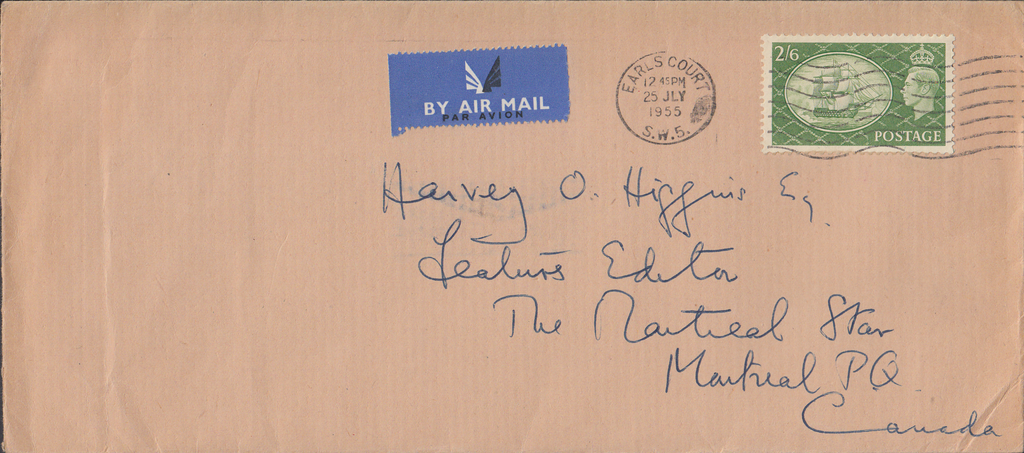 BY AIR MAIL
PAR AVION
EARLS COURT
12 45 PM
25 JLY
1955
S.W.5.
2/6
POSTAGE
Harvey O. Higgins Esq.
Features Editor
The Montreal Star
Montreal P.Q.
Canada